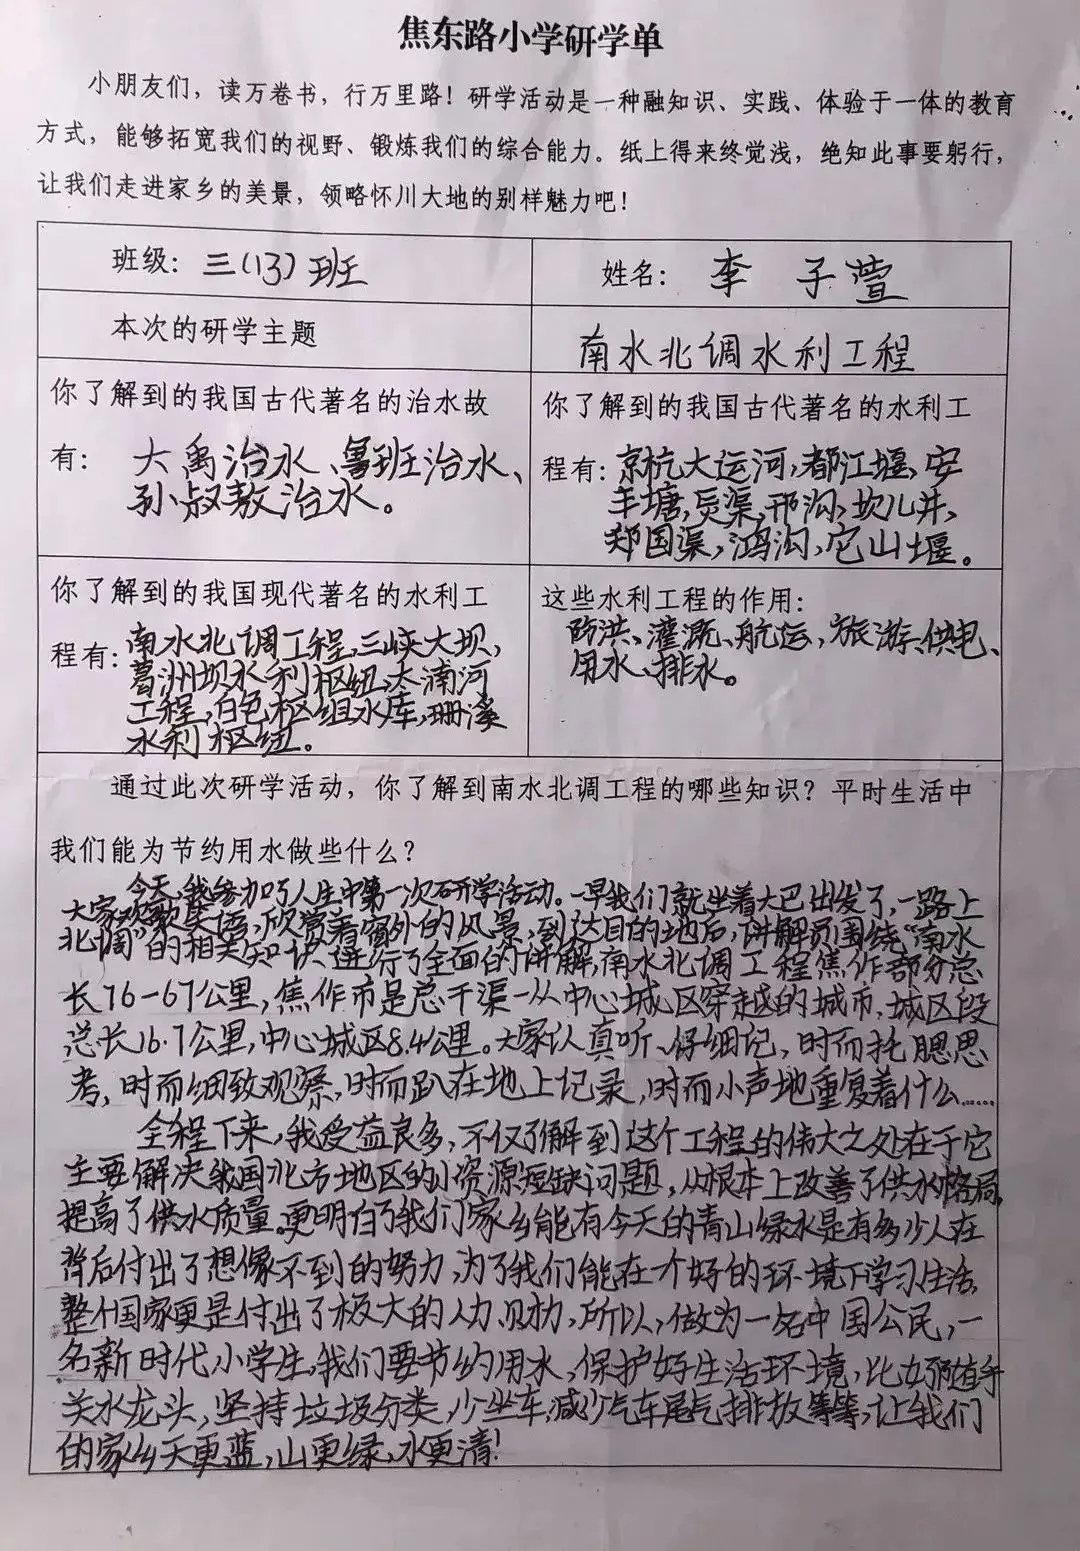 焦东路小学研学单
小朋友们，读万卷书，行万里路！研学活动是一种融知识、实践、体验于一体的教育
方式，能够拓宽我们的视野、锻炼我们的综合能力。纸上得来终觉浅，绝知此事要躬行，
让我们走进家乡的美景，领略怀川大地的别样魅力吧！
班级：三(13)班
姓名：李子萱
本次的研学主题
南水北调水利工程
你了解到的我国古代著名的治水故
有：大禹治水、鲁班治水、
孙叔敖治水。
你了解到的我国古代著名的水利工
程有：京杭大运河，都江堰，安
丰塘，灵渠，邗沟，坎儿井，
郑国渠，鸿沟，它山堰。
你了解到的我国现代著名的水利工
程有：南水北调工程，三峡大坝，
葛洲坝水利枢纽，太浦河
工程，白色枢组水库，珊溪
水利枢纽。
这些水利工程的作用：
防洪、灌溉、航运、旅游、供电、
用水、排水。
通过此次研学活动，你了解到南水北调工程的哪些知识？平时生活中
我们能为节约用水做些什么？
今天，我参加了人生中第一次研学活动。一早我们就坐着大巴出发了，一路上
大家欢歌笑语，欣赏着窗外的风景，到达目的地后，讲解员围绕“南水
北调”的相关知识进行了全面的讲解，南水北调工程焦作部分总
长76-67公里，焦作市是总干渠一从中心城区穿越的城市，城区段
总长16.7公里，中心城区8.4公里。大家认真听、仔细记，时而托腮思
考，时而细致观察，时而趴在地上记录，时而小声地重复着什么……
全程下来，我受益良多，不仅了解到这个工程的伟大之处在于它
主要解决我国北方地区的小资源短缺问题，从根本上改善了供水格局，
提高了供水质量。更明白了我们家乡能有今天的青山绿水是有多少人在
背后付出了想像不到的努力，为了我们能在一个好的环境下学习生活，
整个国家更是付出了极大的人力、财力，所以，做为一名中国公民，一
名新时代小学生，我们要节约用水，保护好生活环境，比如随手
关水龙头，坚持垃圾分类，少坐车，减少汽车尾气排放等等，让我们
的家乡天更蓝，山更绿，水更清！